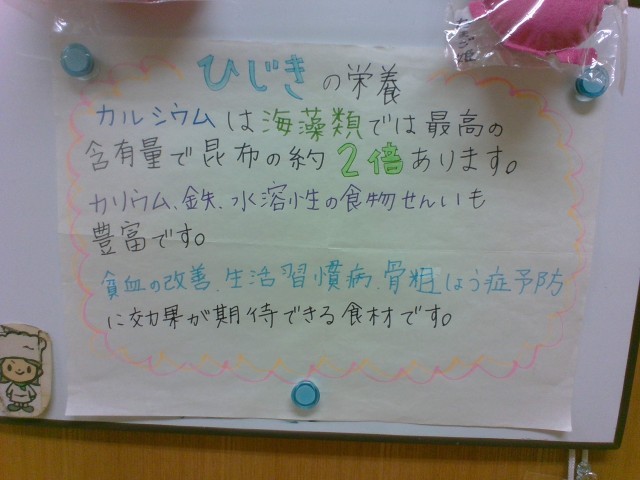 ひじきの栄養
カルシウムは海藻類では最高の
含有量で昆布の約2倍あります。
カリウム、鉄、水溶性の食物せんいも
豊富です。
貧血の改善、生活習慣病、骨粗しょう症予防
に効果が期待できる食材です。